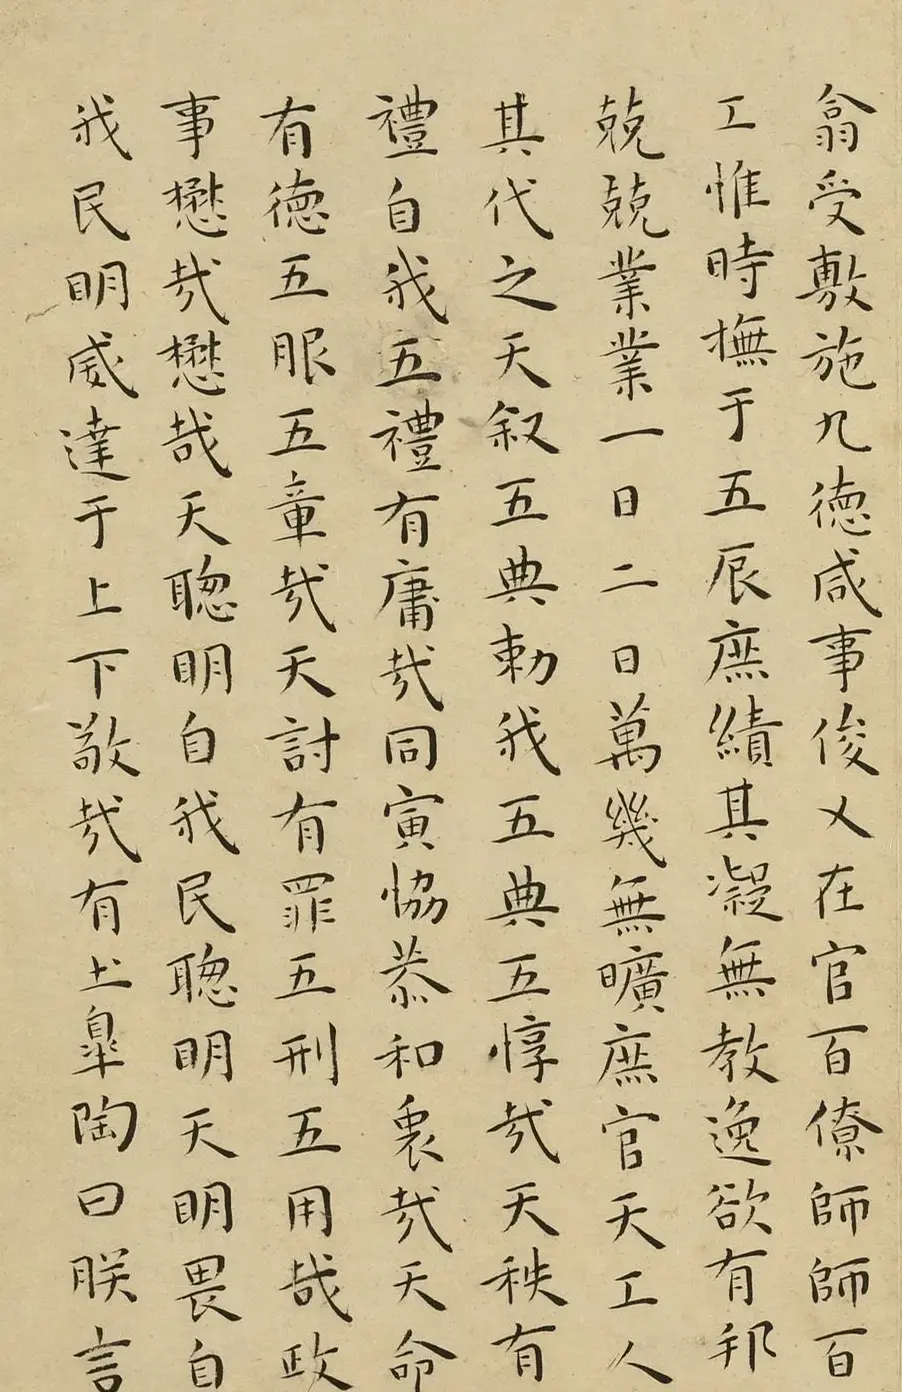 翕受敷施九德咸事俊乂在官百僚師師百
工惟時撫于五辰庶績其凝無教逸欲有邦
兢兢業業一日二日萬幾無曠庶官天工人
其代之天叙五典勅我五典五惇哉天秩有
禮自我五禮有庸哉同寅協恭和衷哉天命
有德五服五章哉天討有罪五刑五用哉政
事懋哉懋哉天聰明自我民聰明天明畏自
我民明威達于上下敬哉有土皐陶曰朕言